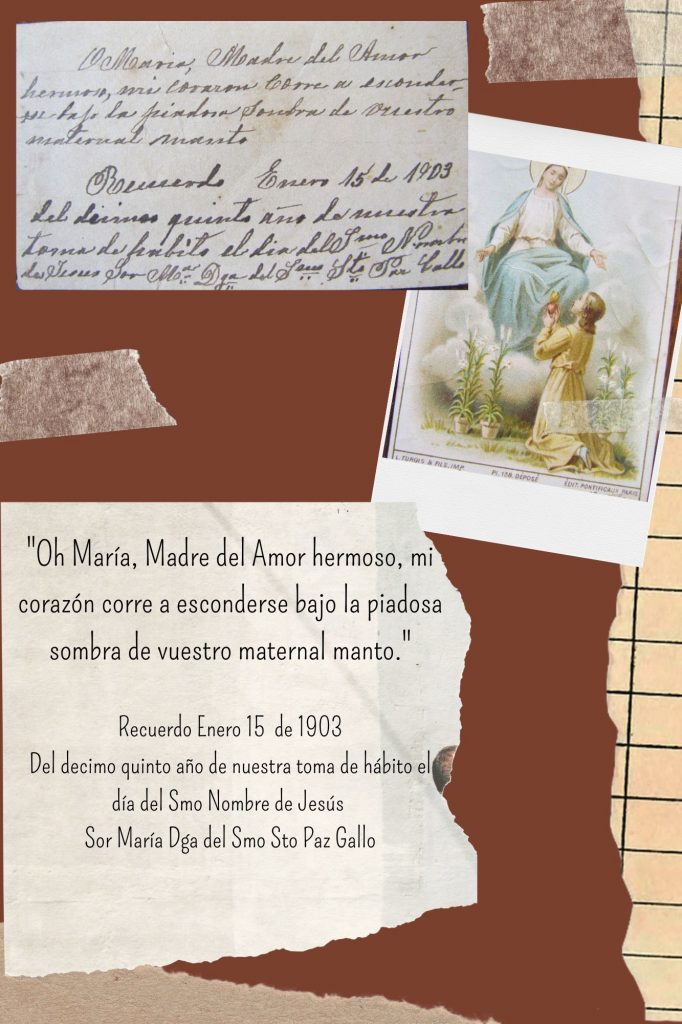 O Maria, Madre del Amor
hermoso, mi corazon corre a esconder-
se bajo la piadosa sombra de vuestro
maternal manto
Recuerdo Enero 15 de 1903
del decimo quinto año de nuestra
toma de habito el dia del Smo Nombre
de Jesus Sor Ma Dga del Smo Sto Paz Gallo
L. TURGIS & FILS, IMP.
PL. 138. DÉPOSÉ
ÉDIT. PONTIFICAUX PARIS
"Oh María, Madre del Amor hermoso, mi
corazón corre a esconderse bajo la piadosa
sombra de vuestro maternal manto."
Recuerdo Enero 15 de 1903
Del decimo quinto año de nuestra toma de hábito el
día del Smo Nombre de Jesús
Sor María Dga del Smo Sto Paz Gallo